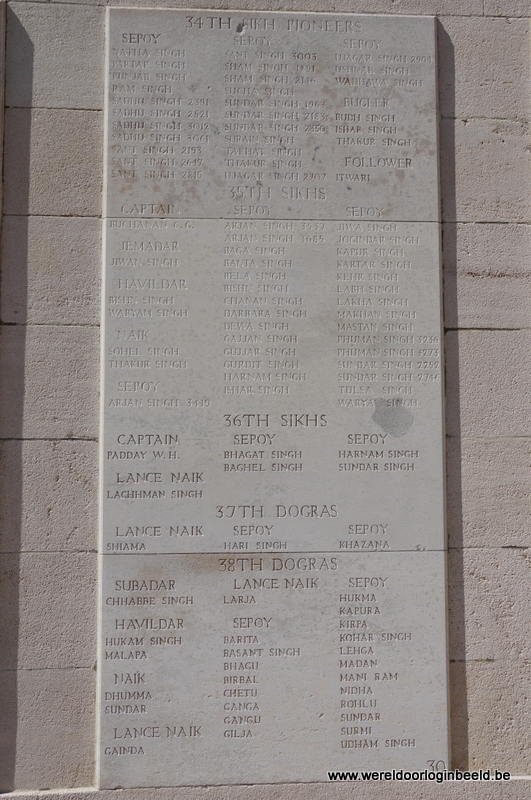 34TH SIKH PIONEERS
SEPOY
NATHA SINGH
PARTAP SINGH
PUNJAB SINGH
RAM SINGH
SADHU SINGH 2391
SADHU SINGH 2821
SADHU SINGH 3012
SADHU SINGH 3061
SANT SINGH 2193
SANT SINGH 2647
SANT SINGH 2815
SEPOY
SANT SINGH 3003
SHAM SINGH
SHAM SINGH 2146
SUCHA SINGH
SUNDAR SINGH 1969
SUNDAR SINGH 2183
SUNDAR SINGH 2350
SURAIN SINGH
TAKHAT SINGH
THAKUR SINGH
UJAGAR SINGH 2707
SEPOY
UJAGAR SINGH 2904
SINGH
WADHAWA SINGH
BUGLER
BUDH SINGH
ISHAR SINGH
THAKUR SINGH
FOLLOWER
ITWARI
35TH SIKHS
CAPTAIN
BUCHANAN C. G.
JEMADAR
JIWAN SINGH
HAVILDAR
BISHN SINGH
WARYAM SINGH
NAIK
SOHEL SINGH
THAKUR SINGH
SEPOY
ARJAN SINGH 3449
SEPOY
ARJAN SINGH 3557
ARJAN SINGH 3685
BAGA SINGH
BANTA SINGH
BELA SINGH
BISHN SINGH
CHANAN SINGH
DARBARA SINGH
DEWA SINGH
GAJJAN SINGH
GUJJAR SINGH
GURDIT SINGH
HARNAM SINGH
ISHAR SINGH
SEPOY
JIWA SINGH
JOGINDAR SINGH
KAPUR SINGH
KARTAR SINGH
KEHR SINGH
LABH SINGH
LAKHA SINGH
MAKHAN SINGH
MASTAN SINGH
PHUMAN SINGH 3236
PHUMAN SINGH 3273
SUNDAR SINGH 2757
SUNDAR SINGH 2740
TULSA SINGH
WARYAM SINGH
36TH SIKHS
CAPTAIN
PADDAY W. H.
LANCE NAIK
LACHHMAN SINGH
SEPOY
BHAGAT SINGH
BAGHEL SINGH
SEPOY
HARNAM SINGH
SUNDAR SINGH
37TH DOGRAS
LANCE NAIK
SHIAMA
SEPOY
HARI SINGH
SEPOY
KHAZANA
38TH DOGRAS
SUBADAR
CHHABBE SINGH
HAVILDAR
HUKAM SINGH
MALAPA
NAIK
DHUMMA
SUNDAR
LANCE NAIK
GAINDA
LANCE NAIK
LARJA
SEPOY
BARITA
BASANT SINGH
BHAGU
BIRBAL
CHETU
GANGA
GANGU
GILJA
SEPOY
HUKMA
KAPURA
KIRPA
KOHAR SINGH
LEHGA
MADAN
MANI RAM
NIDHA
ROHLU
SUNDAR
SURMI
UDHAM SINGH
30
www.wereldoorloginbeeld.be